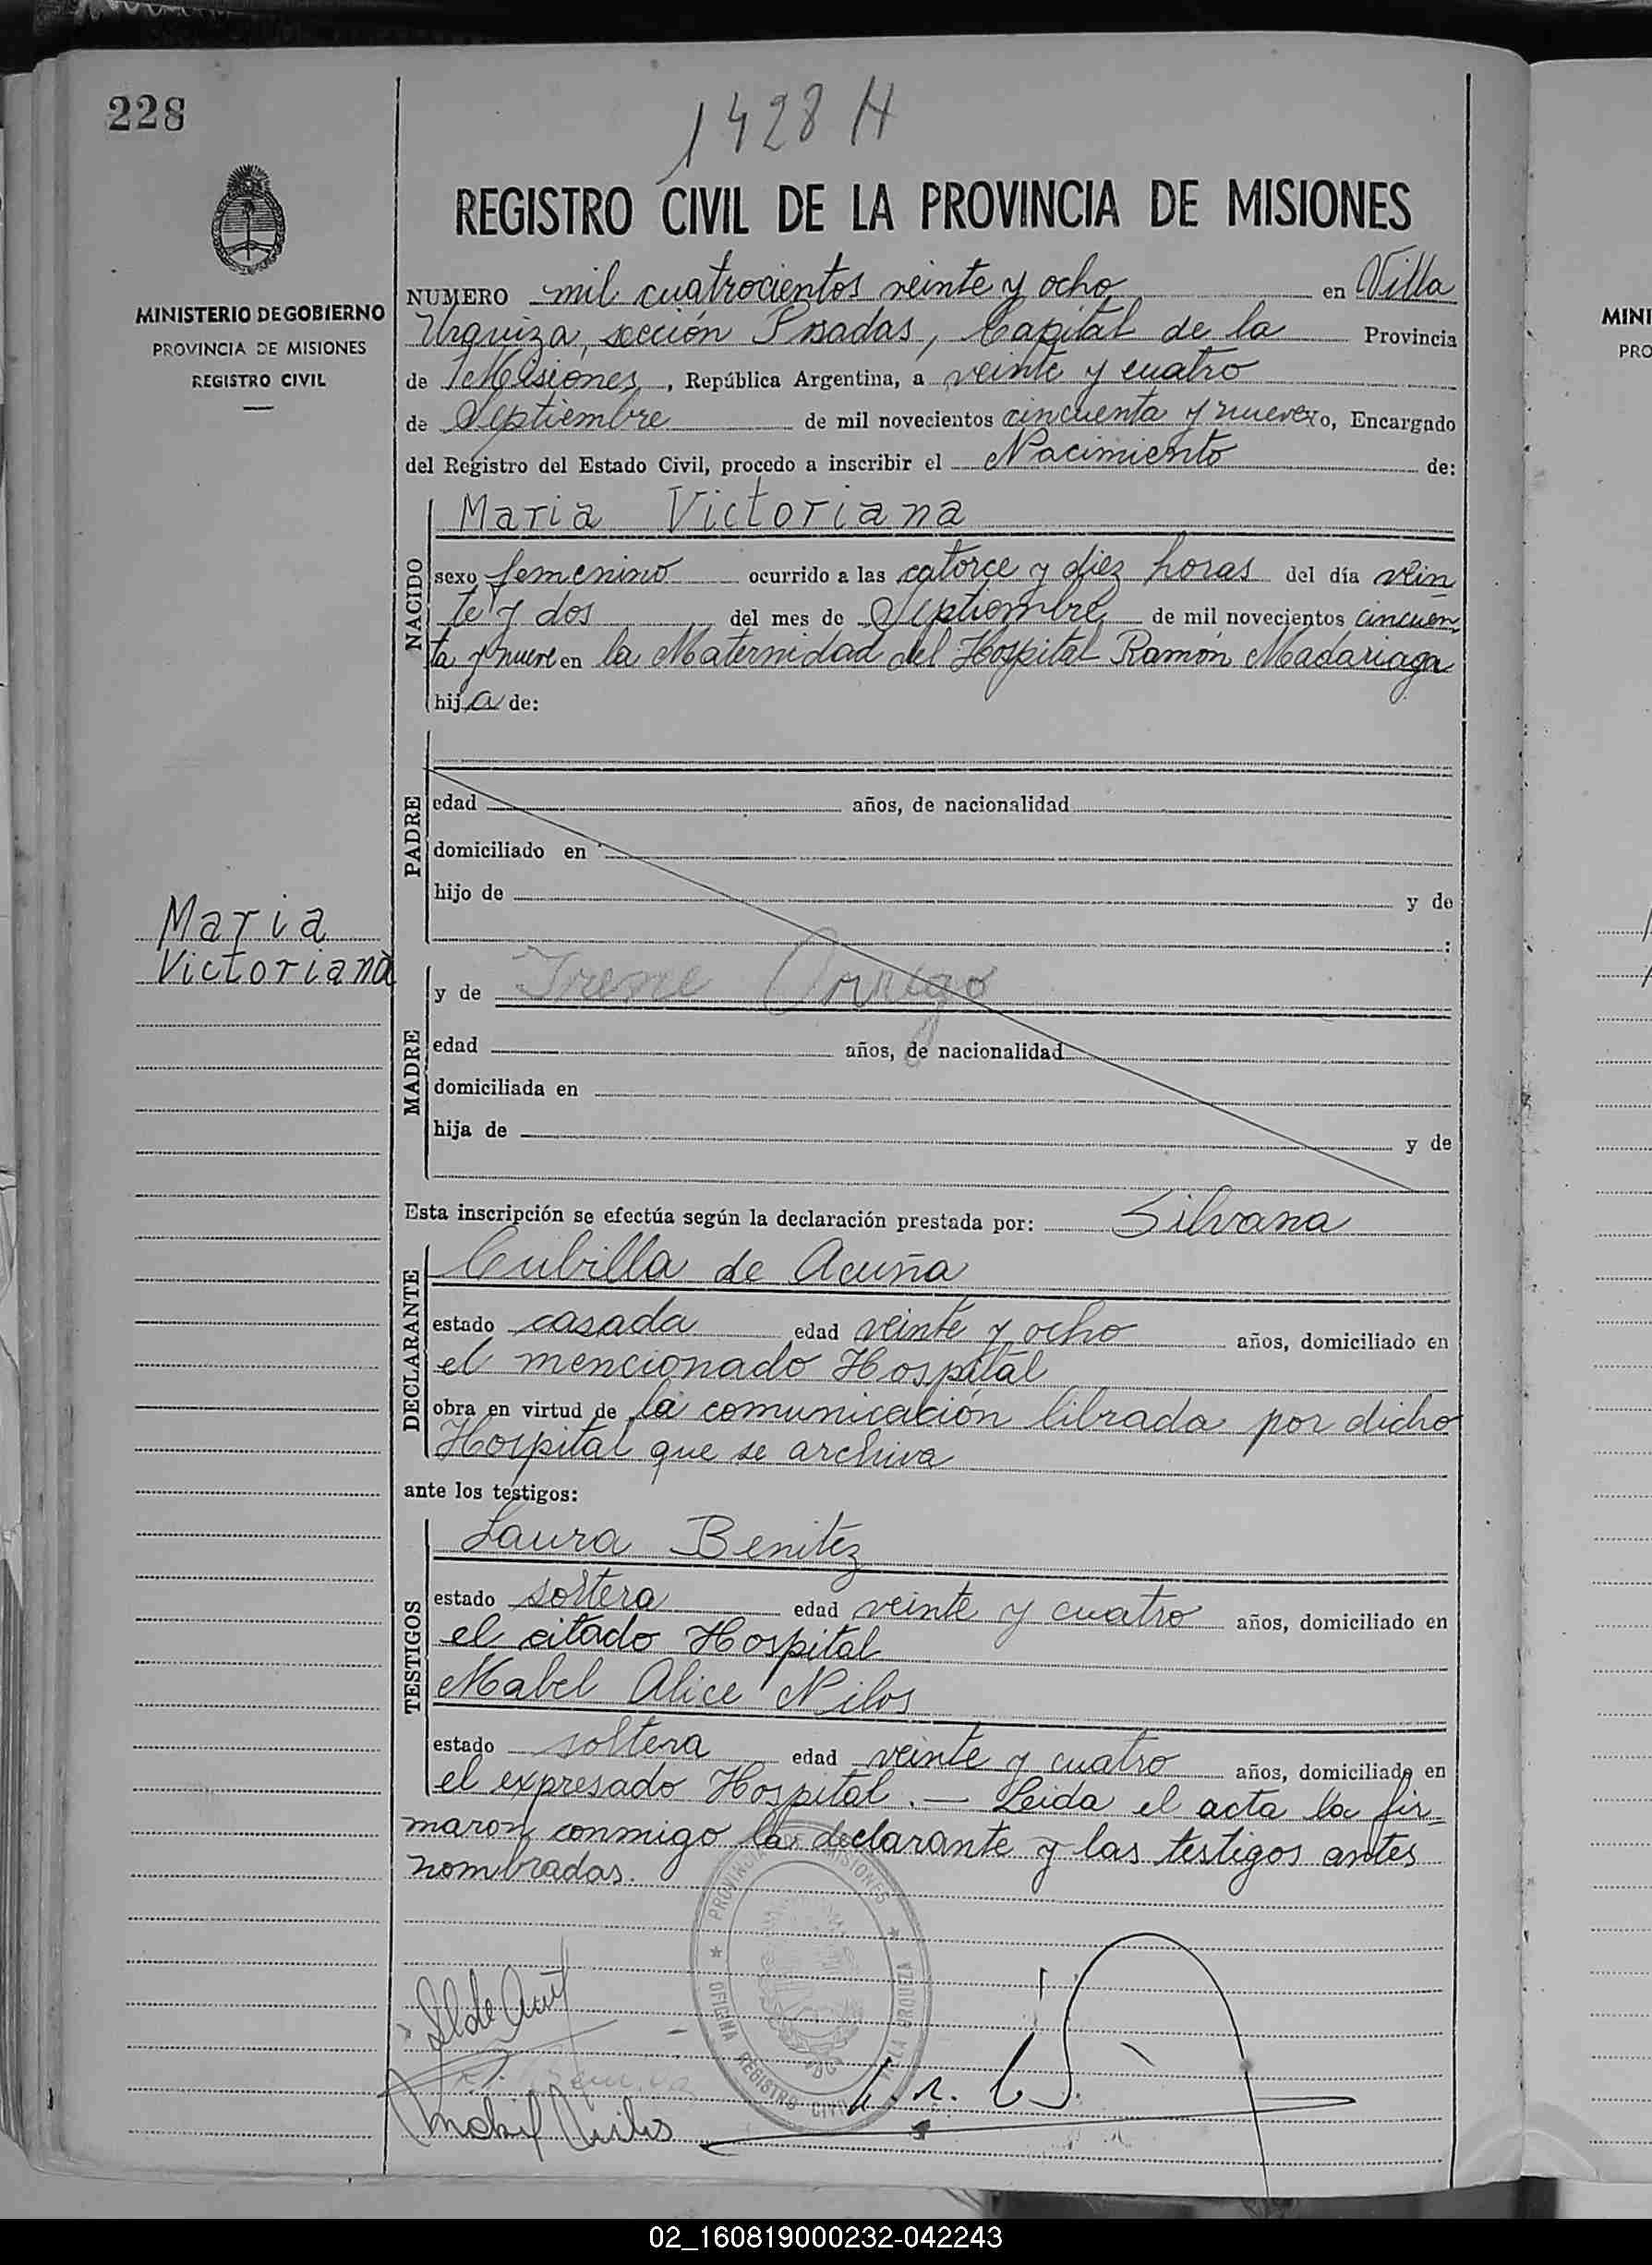 228
1428 H
REGISTRO CIVIL DE LA PROVINCIA DE MISIONES
MINISTERIO DE GOBIERNO
PROVINCIA DE MISIONES
REGISTRO CIVIL
NUMERO mil cuatrocientos veinte y ocho en Villa
Urquiza, sección Posadas, Capital de la Provincia
de Misiones, República Argentina, a veinte y cuatro
de Septiembre de mil novecientos cincuenta y nueve yo, Encargado
del Registro del Estado Civil, procedo a inscribir el Nacimiento de:
NACIDO
Maria Victoriana
sexo femenino ocurrido a las catorce y diez horas del día vein
te y dos del mes de Septiembre de mil novecientos cincuen
ta y nueve en la Maternidad del Hospital Ramón Madariaga
hija de:
PADRE
edad años, de nacionalidad
domiciliado en
hijo de y de
:
Maria
Victoriana
MADRE
y de Irene Orrego
edad años, de nacionalidad
domiciliada en
hija de y de
Esta inscripción se efectúa según la declaración prestada por: Silvana
DECLARANTE
Cubilla de Acuña
estado casada edad veinte y ocho años, domiciliado en
el mencionado Hospital
obra en virtud de la comunicación librada por dicho
Hospital que se archiva
ante los testigos:
TESTIGOS
Laura Benitez
estado soltera edad veinte y cuatro años, domiciliado en
el citado Hospital
Mabel Alice Nilos
estado soltera edad veinte y cuatro años, domiciliado en
el expresado Hospital. — Leida el acta la fir-
maron conmigo la declarante y las testigos antes
nombradas.
PROVINCIA DE MISIONES
OFICINA REGISTRO CIVIL VILLA URQUIZA
MINI
PRO
02_160819000232-042243